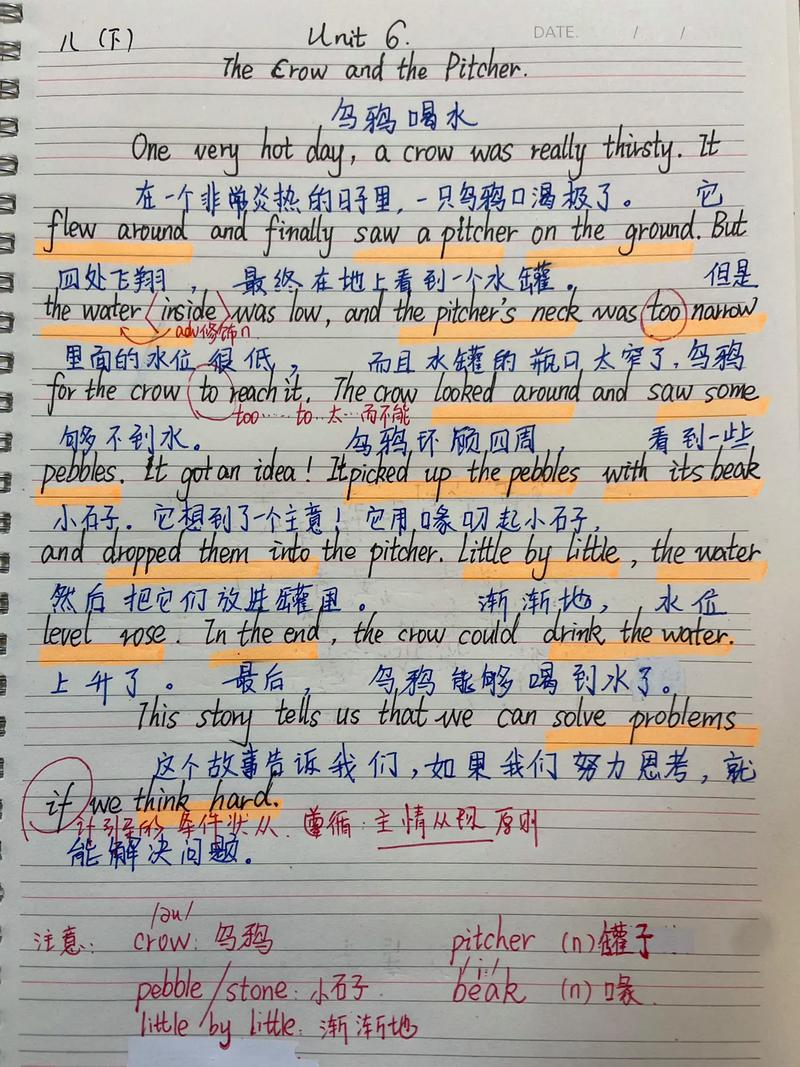 八（下） Unit 6. DATE. / /
The Crow and the Pitcher.
乌鸦喝水
One very hot day, a crow was really thirsty. It
在一个非常炎热的日子里，一只乌鸦口渴极了。 它
flew around and finally saw a pitcher on the ground. But
四处飞翔， 最终在地上看到一个水罐。 但是
the water (inside) was low, and the pitcher's neck was too narrow
adv修饰n
里面的水位很低， 而且水罐的瓶口太窄了，乌鸦
for the crow to reach it. The crow looked around and saw some
too……to…太…而不能
够不到水。 乌鸦环顾四周， 看到一些
pebbles. It got an idea! It picked up the pebbles with its beak
小石子。它想到了一个主意！它用喙叼起小石子，
and dropped them into the pitcher. Little by little, the water
然后把它们放进罐里。 渐渐地， 水位
level rose. In the end, the crow could drink the water.
上升了。 最后， 乌鸦能够喝到水了。
This story tells us that we can solve problems
这个故事告诉我们，如果我们努力思考，就
if we think hard.
if引导的条件状从. 遵循：主情从现 原则
能解决问题。
/əu/
注意： crow：乌鸦 pitcher (n)罐子
/i:/
pebble/stone：小石子 beak (n)喙
little by little：渐渐地